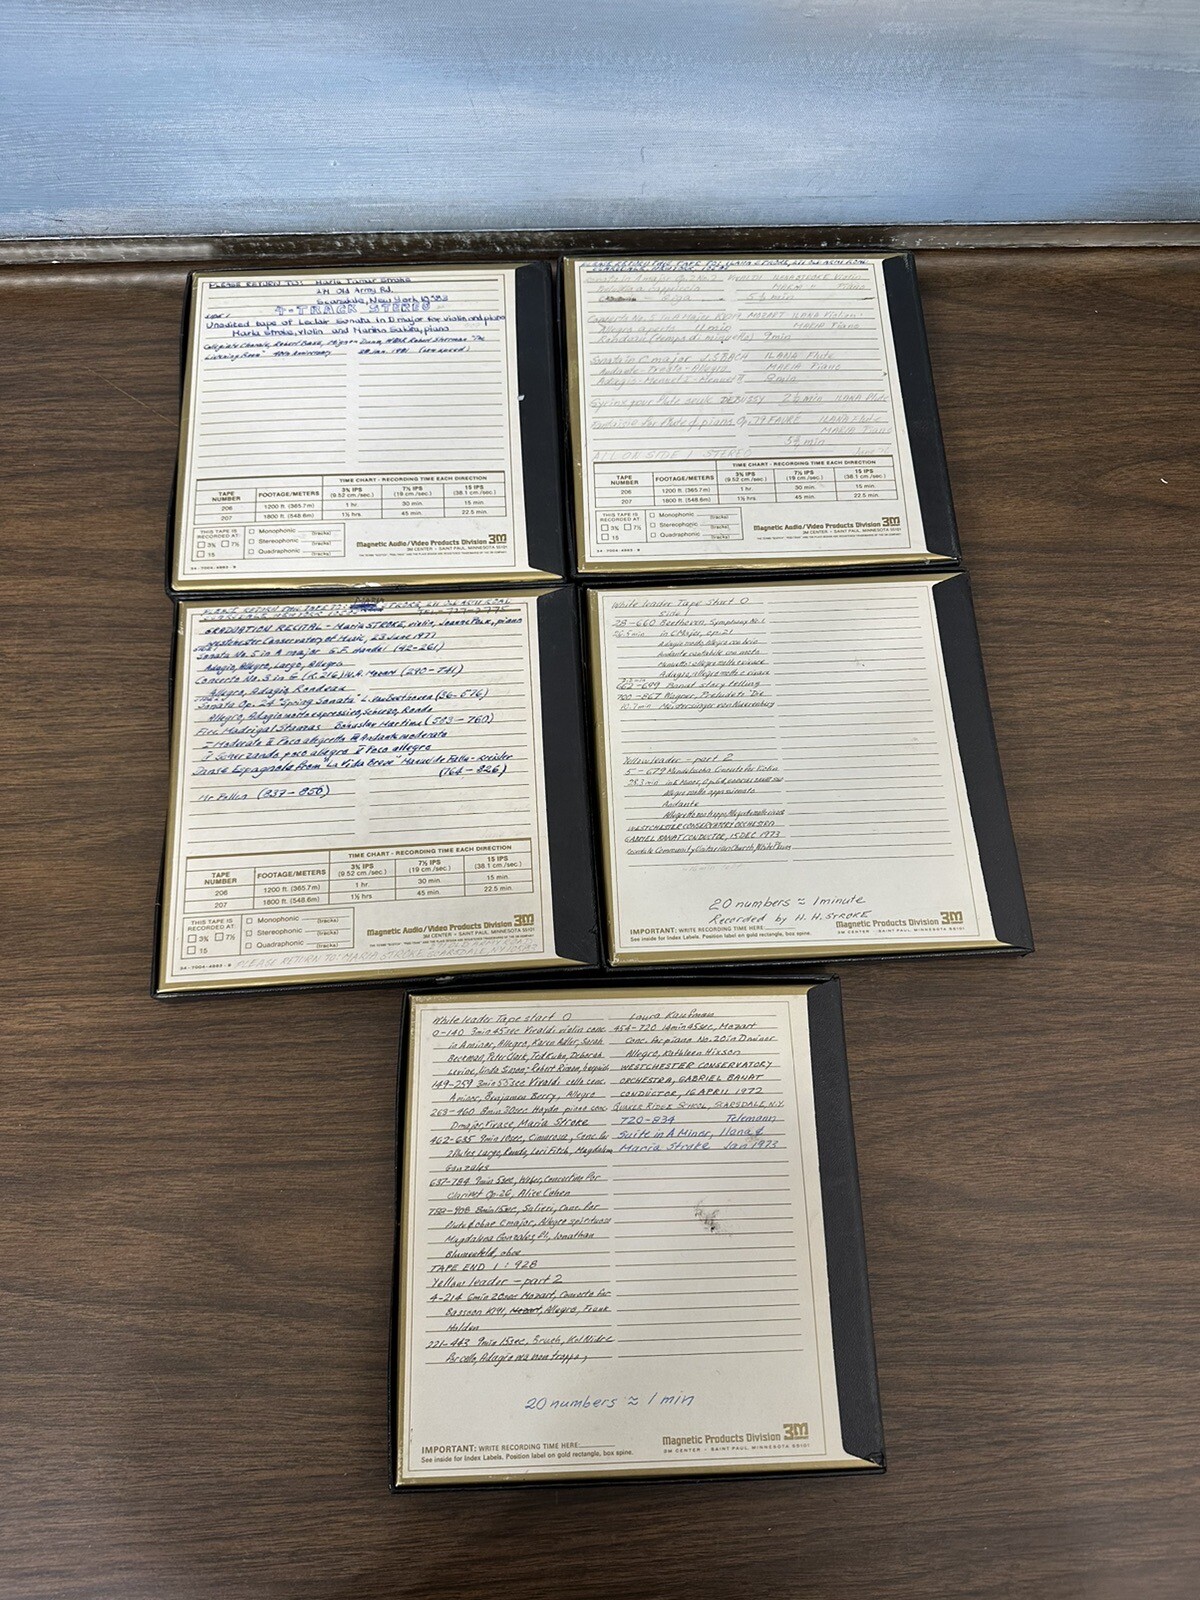 PLEASE RETURN TO: Maria Stroke
Old Army Rd.
Scarsdale, New York 10583
4-TRACK STEREO
Unedited tape of Leclair Sonata in D major for violin and piano
Maria Stroke, violin and piano
Collegiate Chorale, Robert Bass, Robert Sherman "The
Listening Room" 40th Anniversary 1981
TIME CHART - RECORDING TIME EACH DIRECTION
TAPE NUMBER FOOTAGE/METERS 3¾ IPS (9.52 cm./sec.) 7½ IPS (19 cm./sec.) 15 IPS (38.1 cm./sec.)
206 1200 ft. (365.7m) 1 hr. 30 min. 15 min.
207 1800 ft. (548.6m) 1½ hrs. 45 min. 22.5 min.
THIS TAPE IS RECORDED AT:
3¾ 7½
15
Monophonic (tracks)
Stereophonic (tracks)
Quadraphonic (tracks)
Magnetic Audio/Video Products Division 3M
3M CENTER • SAINT PAUL, MINNESOTA 55101
34-7004-4993-9
PLEASE RETURN THIS TAPE TO: ILANA STROKE
5½ min
Concerto No. 5 in A Major MOZART ILANA Violin
Allegro aperto 11 min MARIA Piano
Rondeau (tempo di minuetto) 9 min
Sonata in C major J.S. BACH ILANA Flute
Andante - Presto - Allegro MARIA Piano
Adagio - Menuet I - Menuet II 8 min
Syrinx pour flute seule DEBUSSY 2½ min ILANA Flute
Fantaisie for flute & piano Op. 79 FAURE ILANA Flute
MARIA Piano
5½ min
ALL ON SIDE 1 STEREO
TIME CHART - RECORDING TIME EACH DIRECTION
TAPE NUMBER FOOTAGE/METERS 3¾ IPS (9.52 cm./sec.) 7½ IPS (19 cm./sec.) 15 IPS (38.1 cm./sec.)
206 1200 ft. (365.7m) 1 hr. 30 min. 15 min.
207 1800 ft. (548.6m) 1½ hrs. 45 min. 22.5 min.
THIS TAPE IS RECORDED AT:
3¾ 7½
15
Monophonic (tracks)
Stereophonic (tracks)
Quadraphonic (tracks)
Magnetic Audio/Video Products Division 3M
3M CENTER • SAINT PAUL, MINNESOTA 55101
34-7004-4993-9
PLEASE RETURN THIS TAPE TO: MARIA STROKE
GRADUATION RECITAL - Maria STROKE, violin, Joanne Polk, piano
Westchester Conservatory of Music, 23 June 1977
Sonata No. 5 in A major G.F. Handel (42-261)
Adagio, Allegro, Largo, Allegro
Concerto No. 3 in G (K. 216) W.A. Mozart (290-741)
Allegro, Adagio Rondeau
Sonata Op. 24 "Spring Sonata" L. van Beethoven (36-576)
Allegro, Adagio molto espressivo, Scherzo, Rondo
Five Madrigal Stanzas Bohuslav Martinu (583-760)
I Moderato II Poco allegretto III Andante moderato
IV Scherzando, poco allegro V Poco allegro
Danse Espagnole from "La Vida Breve" Manuel de Falla-Kreisler
(764-826)
Mr Fallon (837-858)
TIME CHART - RECORDING TIME EACH DIRECTION
TAPE NUMBER FOOTAGE/METERS 3¾ IPS (9.52 cm./sec.) 7½ IPS (19 cm./sec.) 15 IPS (38.1 cm./sec.)
206 1200 ft. (365.7m) 1 hr. 30 min. 15 min.
207 1800 ft. (548.6m) 1½ hrs. 45 min. 22.5 min.
THIS TAPE IS RECORDED AT:
3¾ 7½
15
Monophonic (tracks)
Stereophonic (tracks)
Quadraphonic (tracks)
Magnetic Audio/Video Products Division 3M
3M CENTER • SAINT PAUL, MINNESOTA 55101
34-7004-4993-9 PLEASE RETURN TO: MARIA STROKE
White leader Tape start 0
Side 1
28-660 Beethoven, Symphony No. 1
in C Major, op. 21
Adagio molto, Allegro con brio
Andante cantabile con moto
Menuetto: allegro molto e vivace
Adagio, allegro molto e vivace
662-699 Banat story telling
700-867 Wagner, Prelude to "Die
10.7 min Meistersinger von Nuremberg
Yellow leader - part 2
5-679 Mendelssohn Concerto for Violin
28.3 min in E Minor, Op. 64
Allegro molto appassionato
Andante
Allegretto non troppo, Allegro molto vivace
WESTCHESTER CONSERVATORY ORCHESTRA
GABRIEL BANAT CONDUCTOR, 15 DEC 1973
Community Unitarian Church, White Plains
20 numbers ≈ 1 minute
Recorded by H. H. STROKE
IMPORTANT: WRITE RECORDING TIME HERE
See inside for Index Labels. Position label on gold rectangle, box spine.
Magnetic Products Division 3M
3M CENTER • SAINT PAUL, MINNESOTA 55101
White leader Tape start 0
0-140 3min 45sec Vivaldi violin conc.
in A minor, Allegro, Karen Adler, Sarah
Beckman, Peter Clark, Ted Kuhn, Deborah
Levine, Linda Simon; Robert
149-259 3min 55sec Vivaldi cello conc.
A minor, Benjamin Berry, Allegro
263-460 8min 20sec Haydn, piano conc.
D major, Vivace, Maria Stroke
462-635 9min 10sec, Cimarosa, Conc. for
2 flutes, Largo, Rondo, Lori Fitch, Magdalena
Gonzales
637-784 9min 5sec, Weber, Concertino for
Clarinet Op. 26, Alice Cohen
788-908 8min 15sec, Salieri, Conc. for
flute & oboe C major, Allegro spirituoso
Magdalena Gonzales, fl., Jonathan
Blumenfeld, oboe
TAPE END 1: 928
Yellow leader - part 2
4-214 6min 20sec Mozart, Concerto for
Bassoon K191, Allegro, Frank
Holden
221-443 9min 15sec, Bruch, Kol Nidre
for cello, Adagio ma non troppo,
Laura Kaufmann
454-720 14min 45sec, Mozart
Conc. for piano No. 20 in D minor
Allegro, Kathleen Hixson
WESTCHESTER CONSERVATORY
ORCHESTRA, GABRIEL BANAT
CONDUCTOR, 16 APRIL 1972
QUAKER RIDGE SCHOOL, SCARSDALE, N.Y.
720-834 Telemann
Suite in A Minor, Ilana &
Maria Stroke Jan 1973
20 numbers ≈ 1 min
IMPORTANT: WRITE RECORDING TIME HERE
See inside for Index Labels. Position label on gold rectangle, box spine.
Magnetic Products Division 3M
3M CENTER • SAINT PAUL, MINNESOTA 55101